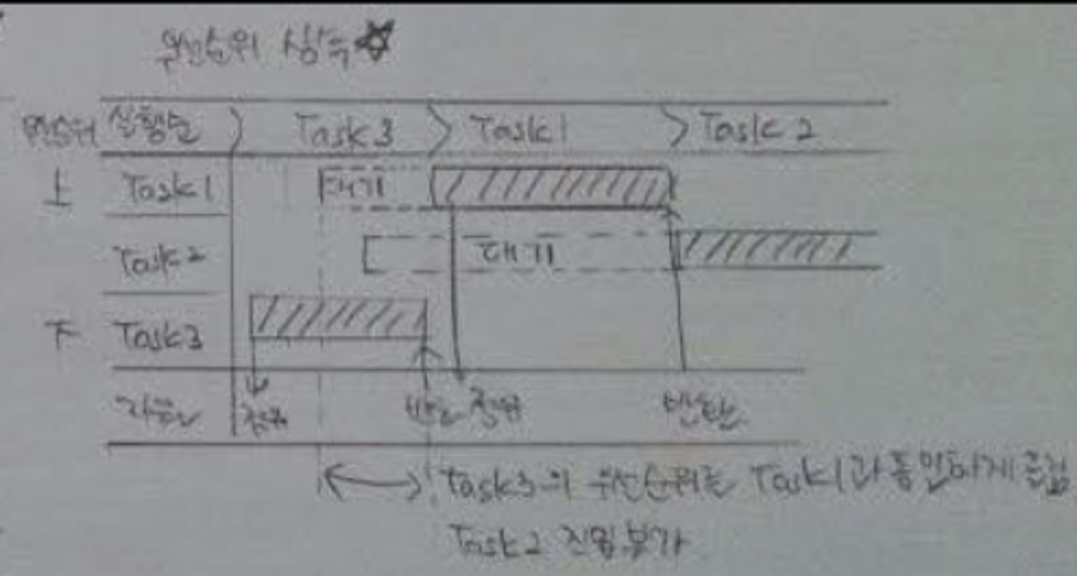 우선순위 상속☆
우선순위 실행순 > Task3 > Task1 > Task2
上 Task1 대기
Task2 대기
下 Task3
자원 점유 반환 점유 반환
Task3의 우선순위는 Task1과 동일하게 조정
Task2 진입 불가